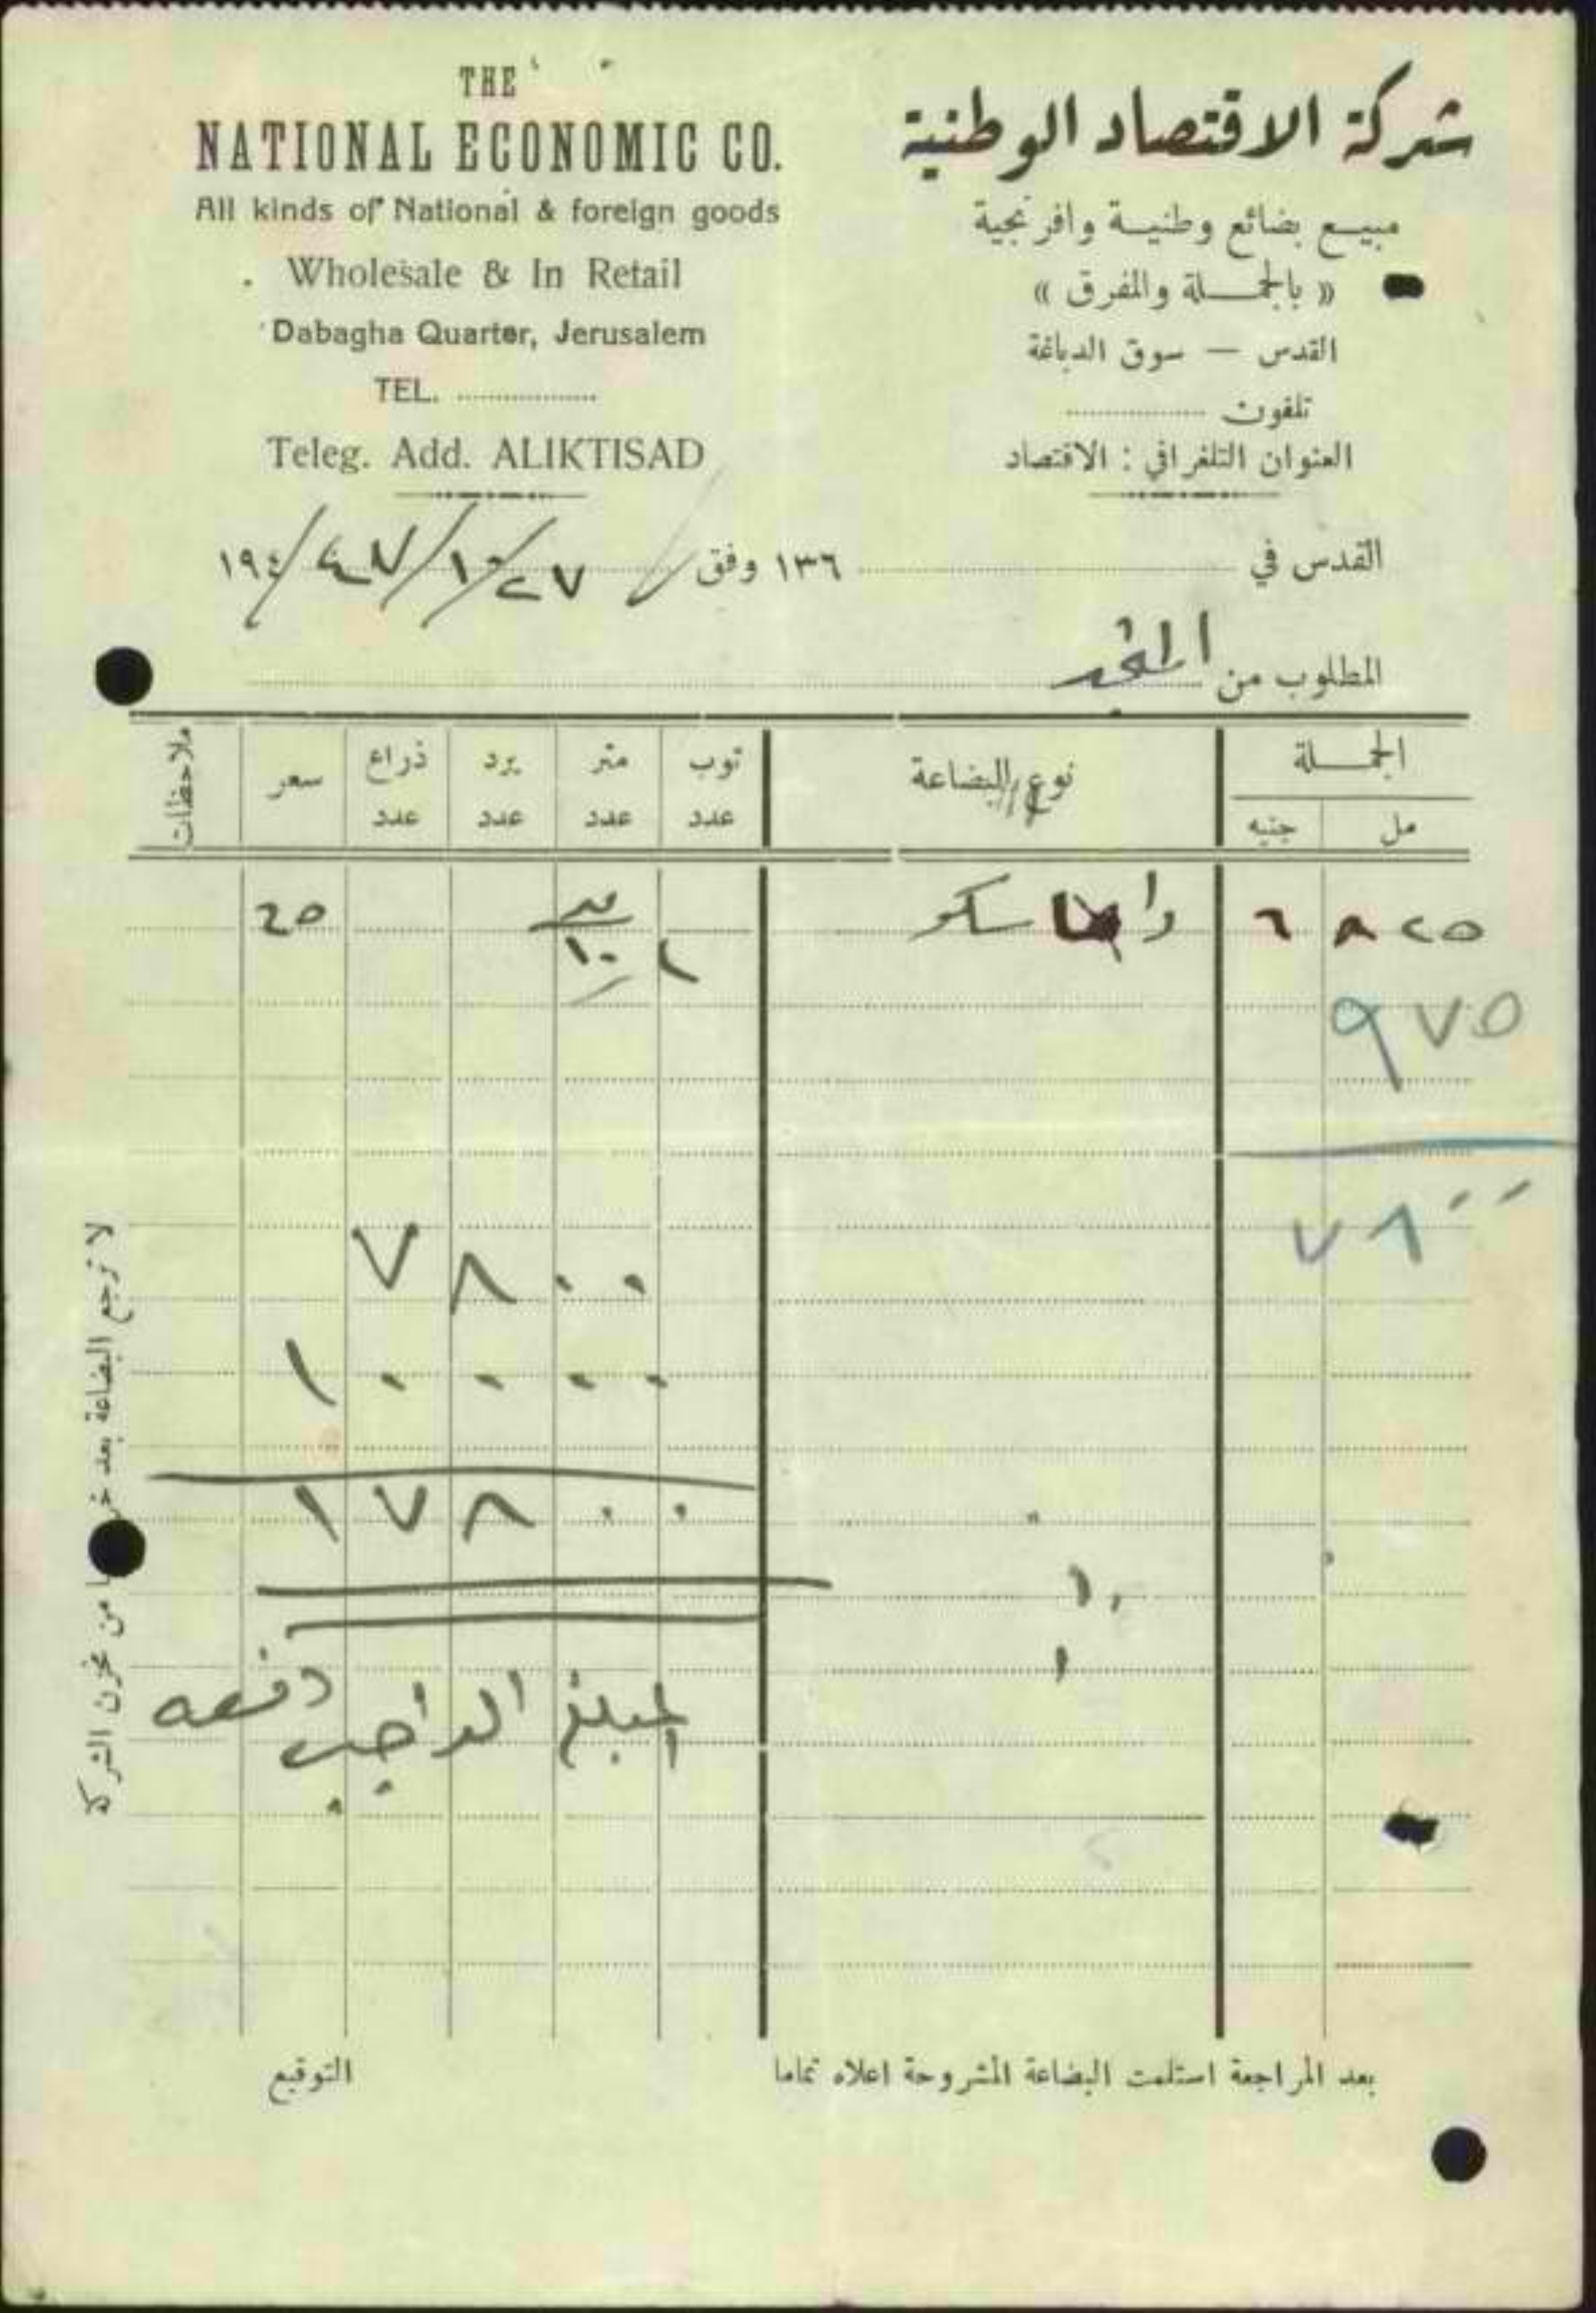 THE
NATIONAL ECONOMIC CO.
All kinds of National & foreign goods
Wholesale & In Retail
Dabagha Quarter, Jerusalem
TEL. ..................
Teleg. Add. ALIKTISAD
شركة الاقتصاد الوطنية
مبيع بضائع وطنية وافرنجية
« بالجملة والمفرق »
القدس — سوق الدباغة
تلفون ..................
العنوان التلغرافي : الاقتصاد
القدس في ١٣٦ وفق ٢٧/١٠/٤٧/١٩٤
المطلوب من
الجملة نوع البضاعة توب متر يرد ذراع سعر ملاحظات
مل جنيه عدد عدد عدد عدد
٨٢٥ ٦ سكو ٢٥
٩٧٥
٧٨٠٠
٧٨٠٠
١٠٠٠٠
١٧٨٠٠
المبلغ الواجب دفعه
لا ترجع البضاعة بعد من مخزن الشركة
بعد المراجعة استلمت البضاعة المشروحة اعلاه تماما
التوقيع